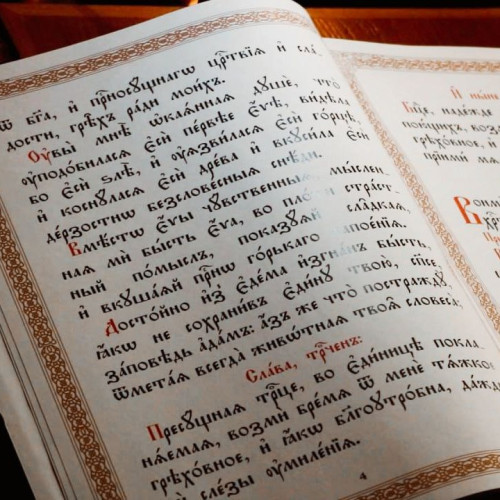 ѿ бг҃а, и҆ прⷭ҇носꙋ́щнагѡ црⷭ҇твїѧ и҆ сла́-
дости, грѣ̑хъ ра́ди мои́хъ.
Оу҆вы̀ мнѣ̀ ѡ҆каѧ́ннаѧ дꙋшѐ, что̀
оу҆подо́биласѧ є҆сѝ пе́рвѣй є҆́ѵѣ; ви́дѣла
бо є҆сѝ ѕлѣ̀, и҆ оу҆ѧзви́ласѧ є҆сѝ го́рцѣ,
и҆ коснꙋ́ласѧ є҆сѝ дре́ва и҆ вкꙋси́ла є҆сѝ
де́рзостнѡ безслове́сныѧ снѣ́ди.
Вмѣ́стѡ є҆́ѵы чꙋ́вственныѧ, мы́слен-
наѧ мѝ бы́сть є҆́ѵа, во пло́ти стра́ст-
ный по́мыслъ, показꙋ́ѧй сла̑дкаѧ,
и҆ вкꙋша́ѧй при́снѡ го́рькагѡ напое́нїѧ.
Досто́йнѡ и҆з̾ є҆де́ма и҆згна́нъ бы́сть,
ꙗ҆́кѡ не сохрани́въ є҆ди́нꙋ твою̀, сп҃се,
за́повѣдь а҆да́мъ: а҆́зъ же что̀ постраждꙋ̀,
ѿмета́ѧ всегда̀ живѡ́тнаѧ твоѧ̑ словеса̀;
Сла́ва, трⷪ҇ченъ:
Пресꙋ́щнаѧ трⷪ҇це, во є҆ди́ницѣ покла-
нѧ́емаѧ, возмѝ бре́мѧ ѿ менє̀ тѧ́жкое
грѣхо́вное, и҆ ꙗ҆́кѡ бл҃гоꙋтро́бна, да́ждь
мѝ сле́зы оу҆миле́нїѧ.
4
И҆ ны́нѣ
Бцⷣе, наде́жде
пою́щихъ, воз
грѣхо́вное, и҆
прїимѝ мѧ